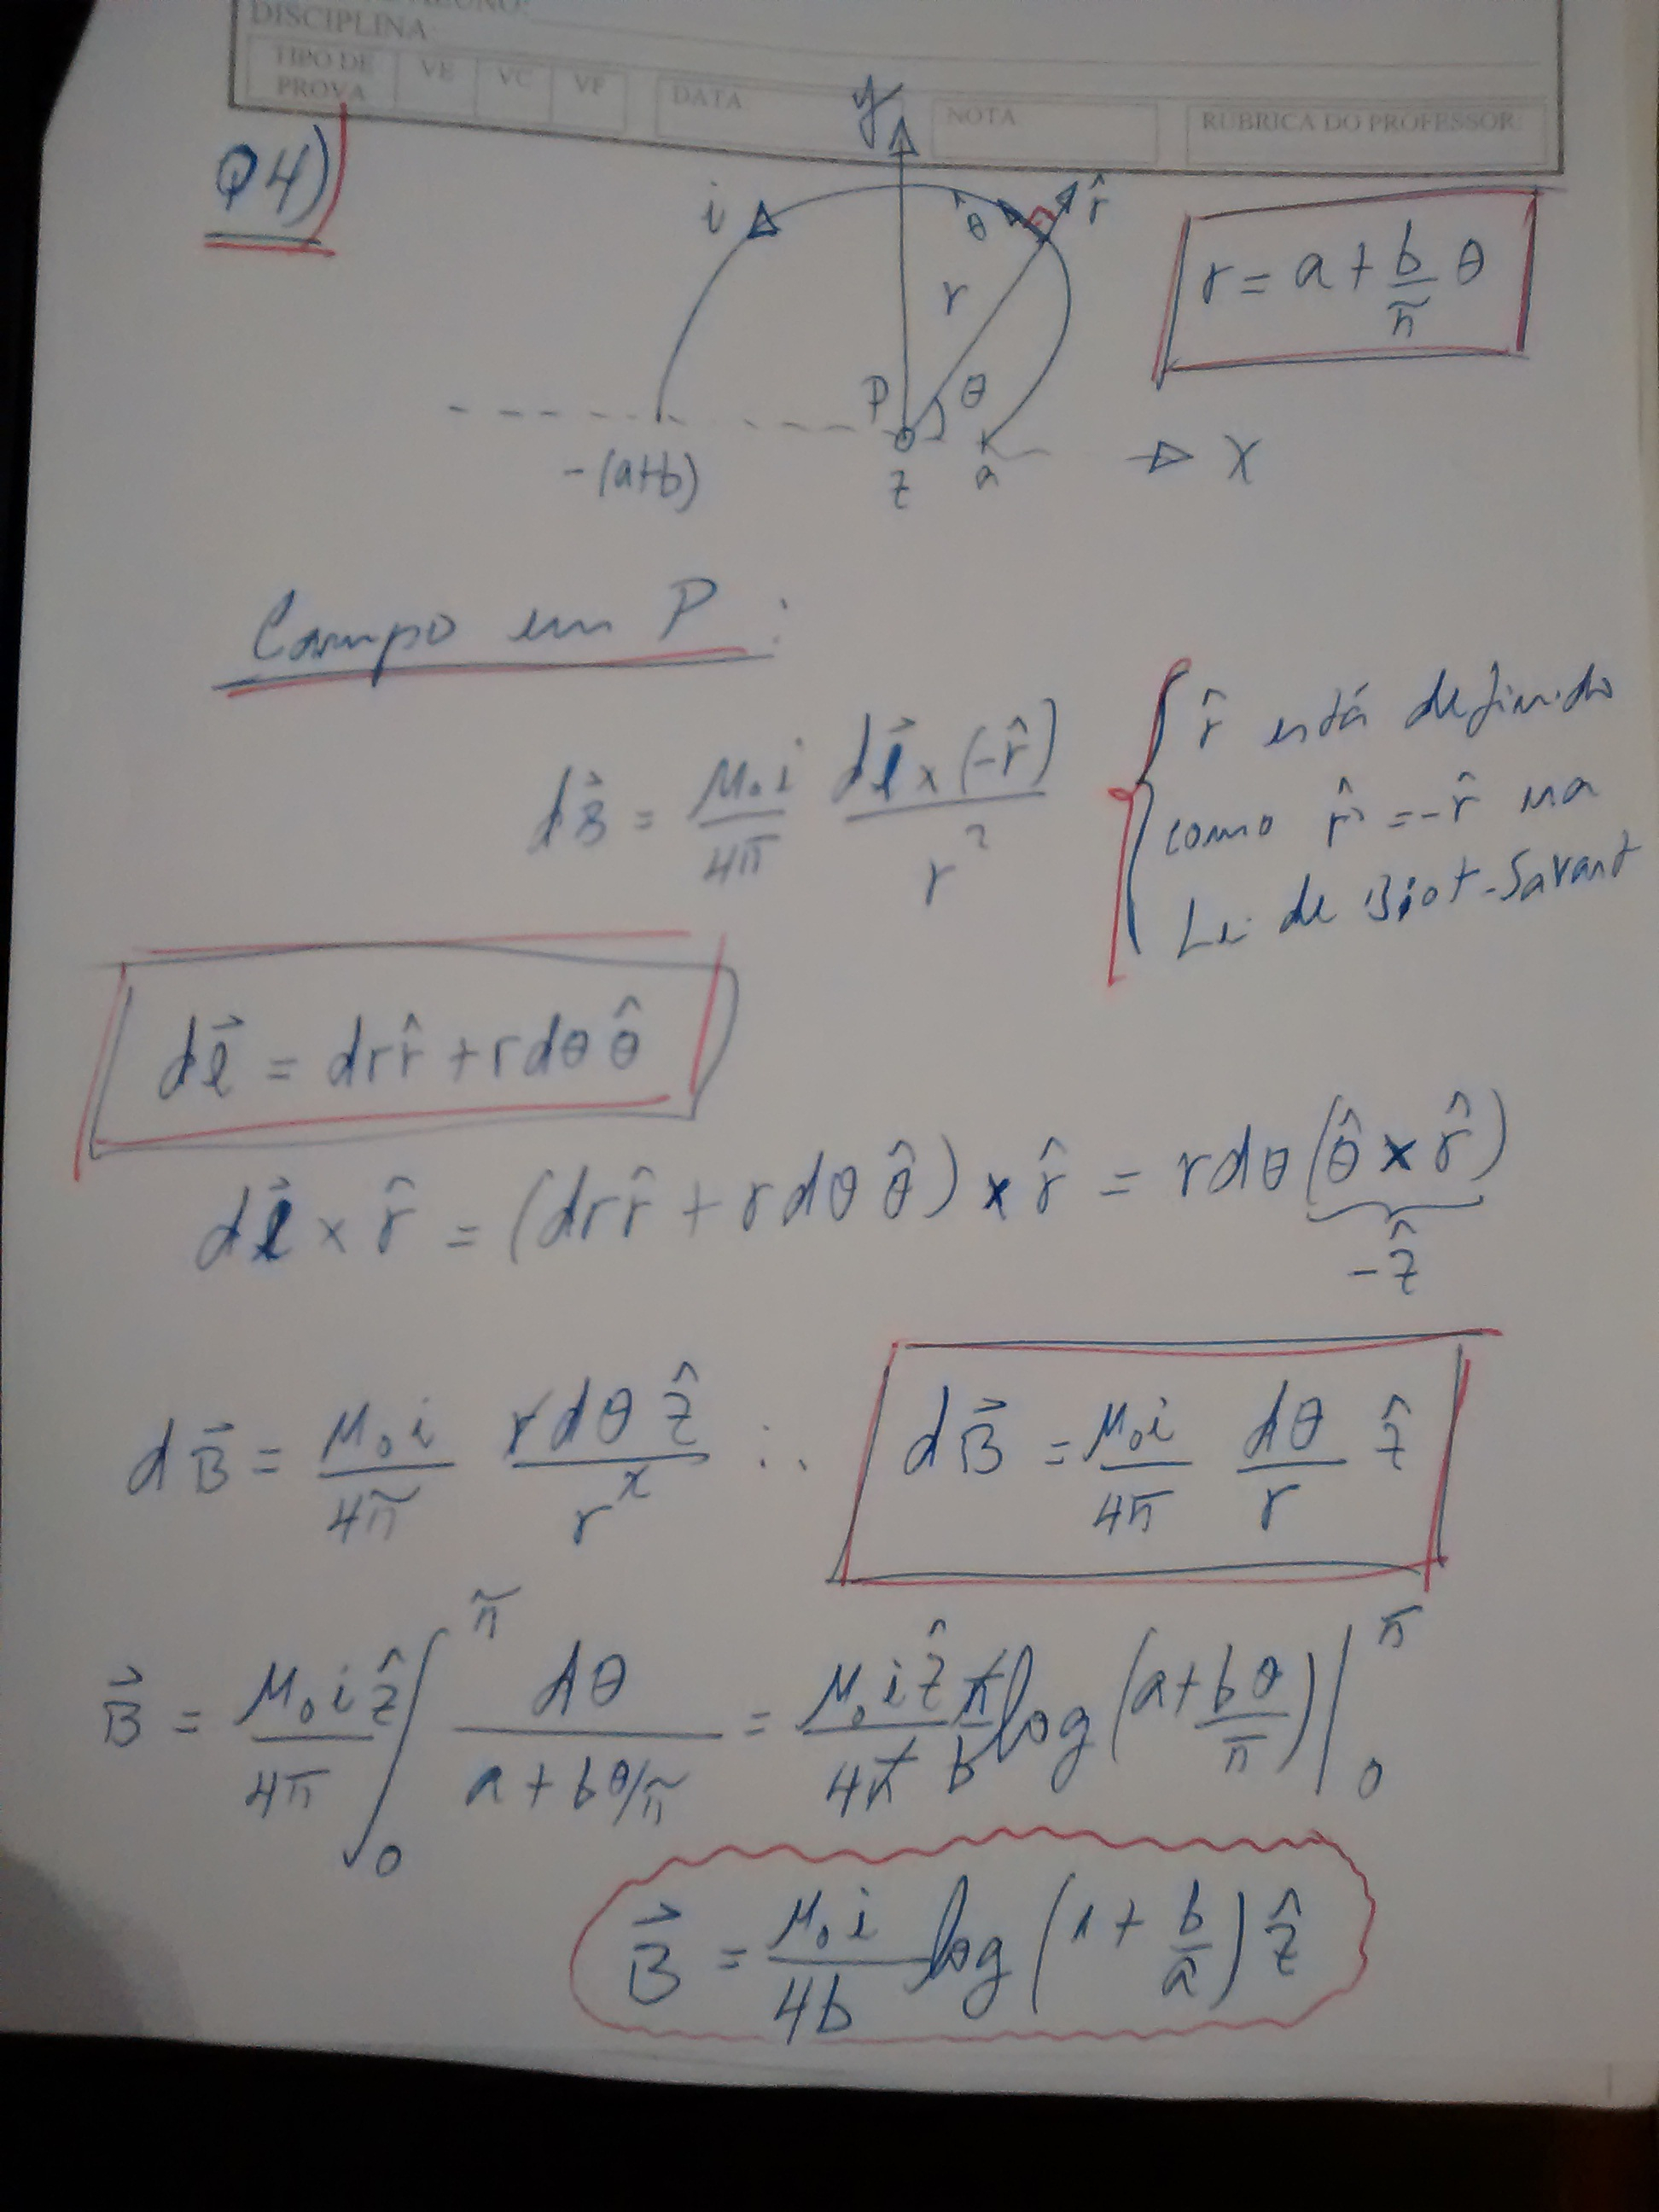 DISCIPLINA:
TIPO DE PROVA VE VC VF DATA NOTA RUBRICA DO PROFESSOR:
Q4)
y
i
θ̂
r̂
r = a + b/π θ
r
P
θ
-(a+b)
z
a
X
Campo em P:
dB⃗ = μ₀i/4π dl⃗ × (-r̂)/r²
r̂ está definido
como r̂' = -r̂ na
Lei de Biot-Savart
dl⃗ = dr r̂ + r dθ θ̂
dl⃗ × r̂ = (dr r̂ + r dθ θ̂) × r̂ = r dθ (θ̂ × r̂)
-ẑ
dB⃗ = μ₀i/4π r dθ ẑ/r² ∴ dB⃗ = μ₀i/4π dθ/r ẑ
B⃗ = μ₀iẑ/4π ∫₀^π dθ/(a + bθ/π) = μ₀iẑ/4π π/b log(a + bθ/π)|₀^π
B⃗ = μ₀i/4b log(1 + b/a) ẑ